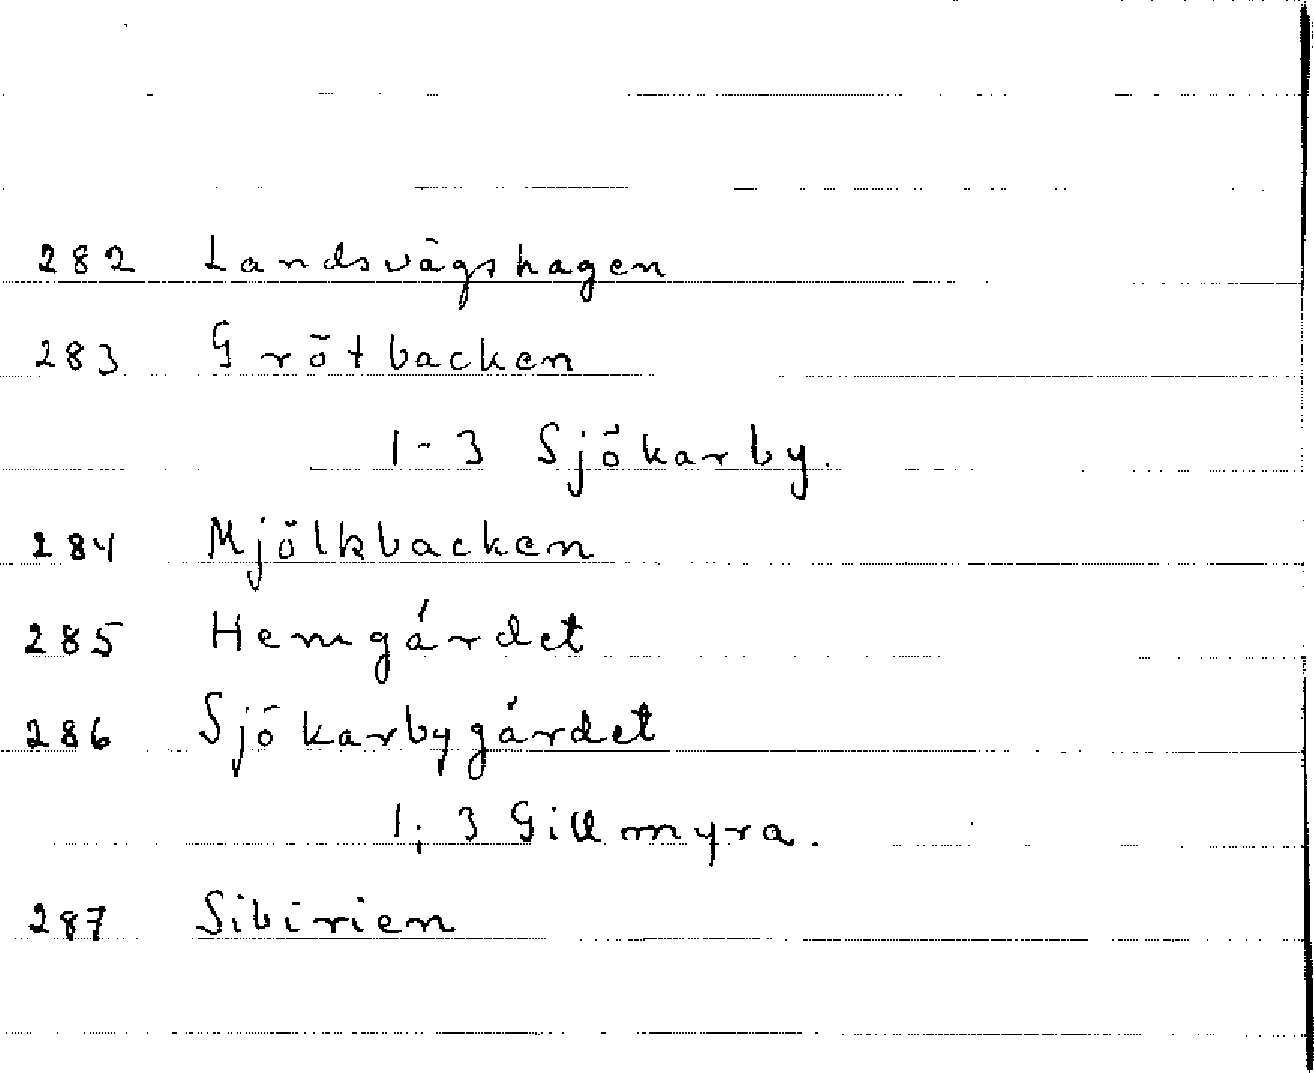 282 Landsvägshagen
283 Grötbacken
1-3 Sjökarby.
284 Mjölkbacken
285 Hemgårdet
286 Sjökarbygårdet
1; 3 Gillmyra.
287 Sibirien